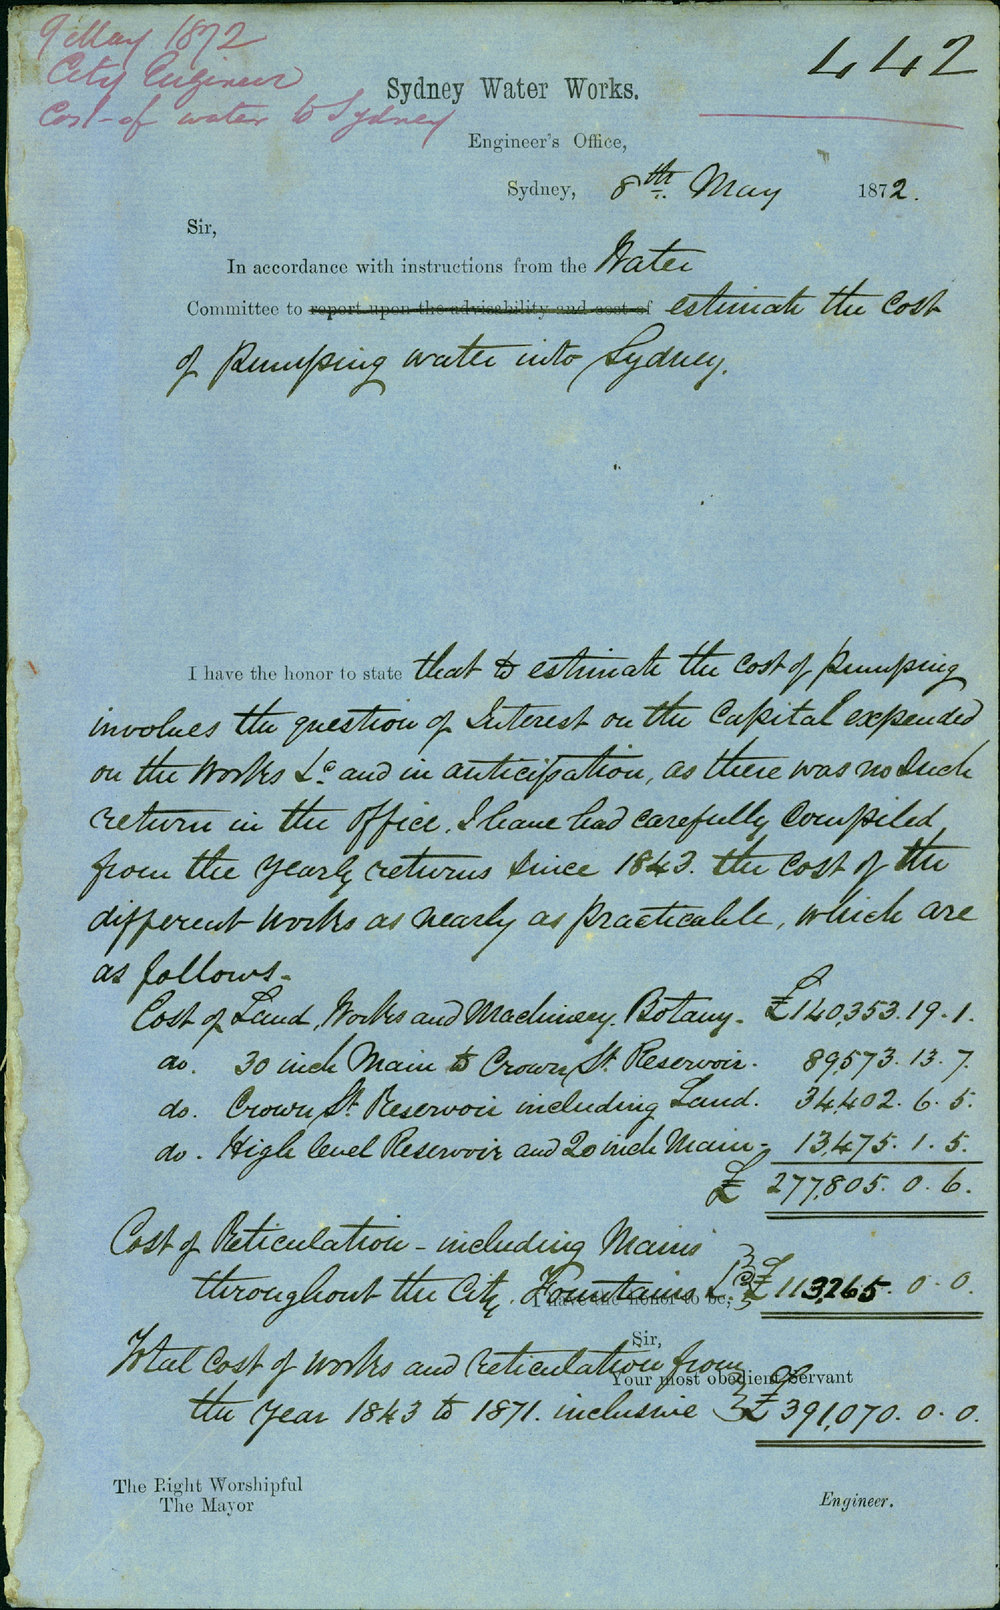 9 May 1872
City Engineer
Cost of water to Sydney
442
Sydney Water Works.
Engineer's Office,
Sydney, 8th May 1872.
Sir,
In accordance with instructions from the Water
Committee to report upon the advisability and cost of estimate the Cost
of Pumping water into Sydney.
I have the honor to state that to estimate the Cost of Pumping
involves the question of Interest on the Capital expended
on the Works &c and in anticipation, as there was no Such
return in the Office. I have had carefully Compiled,
from the Yearly returns Since 1843. the Cost of the
different Works as nearly as Practicable, which are
as follows-
Cost of Land, Works and Machinery. Botany- £140,353.19.1.
do. 30 inch Main to Crown St. Reservoir. 89,573.13.7.
do. Crown St. Reservoir including Land. 34,402.6.5.
do. High level Reservoir and 20 inch Main- 13,475.1.5.
£ 277,805.0.6.
Cost of Reticulation - including Mains
throughout the City. Fountains &c £113,265.0.0.
I have the honor to be,
Sir,
Total Cost of Works and reticulation from
Your most obedient Servant
the Year 1843 to 1871. inclusive £391,070.0.0.
The Right Worshipful
The Mayor
Engineer.